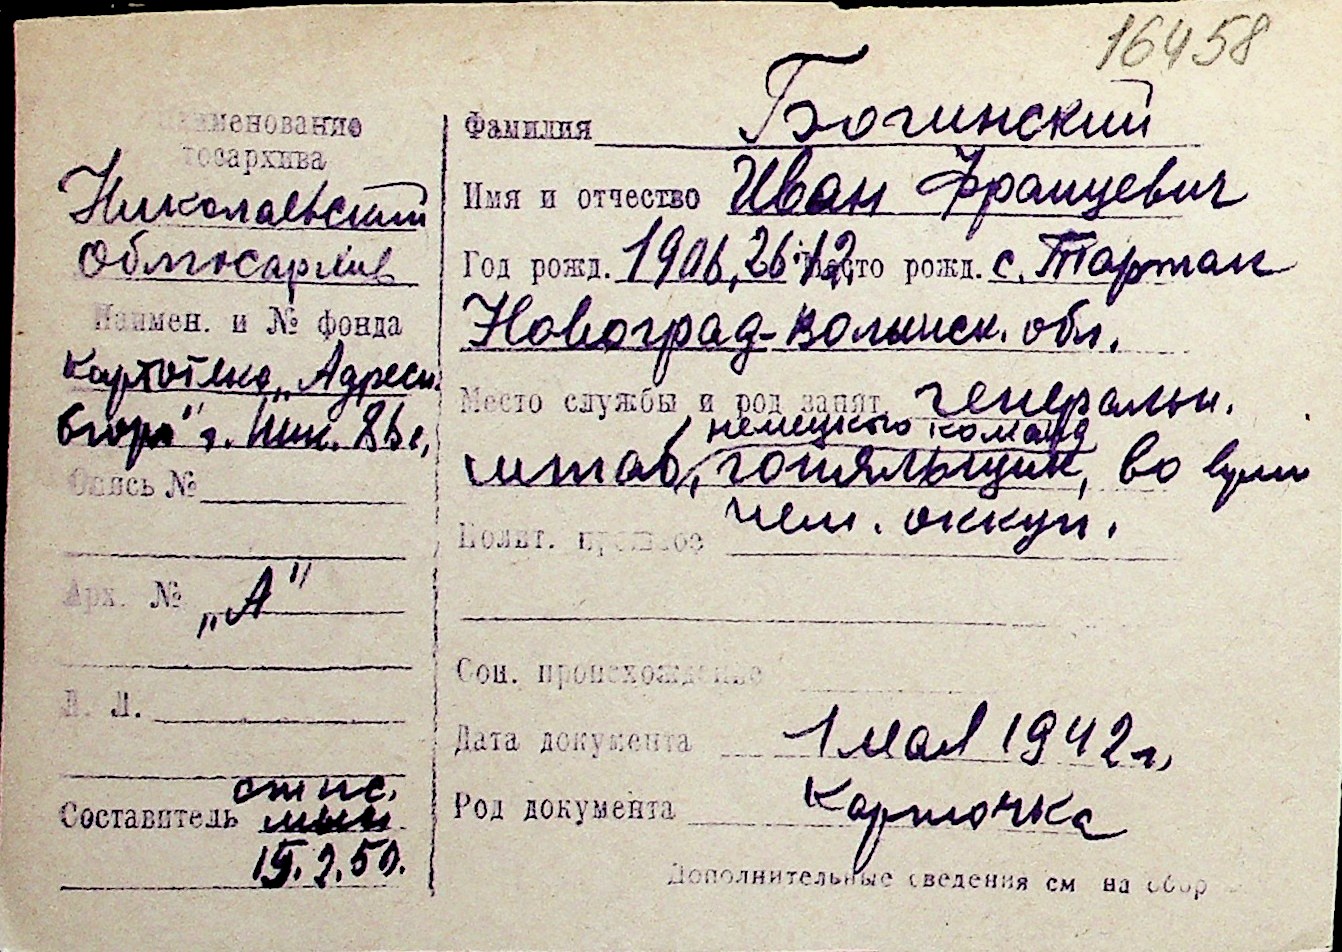 16458
Наименование
госархива
Николаевский
Облгосархив
Наимен. и № фонда
Картотека „Адресн.
бюро" г.
Опись №
Арх. № „А"
Л. Л.
Составитель
15.2.50.
Фамилия Богинский
Имя и отчество Иван Францевич
Год рожд. 1906, 26.12. Место рожд. с. Тартак
Новоград-Волынск. обл.
Место службы и род занят. генеральн.
немецкого команд
штаб, гопяльщик, во врем
нем. оккуп.
Полит. прошлое
Соц. происхождение
Дата документа 1 мая 1942 г.
Род документа Карточка
Дополнительные сведения см на обор